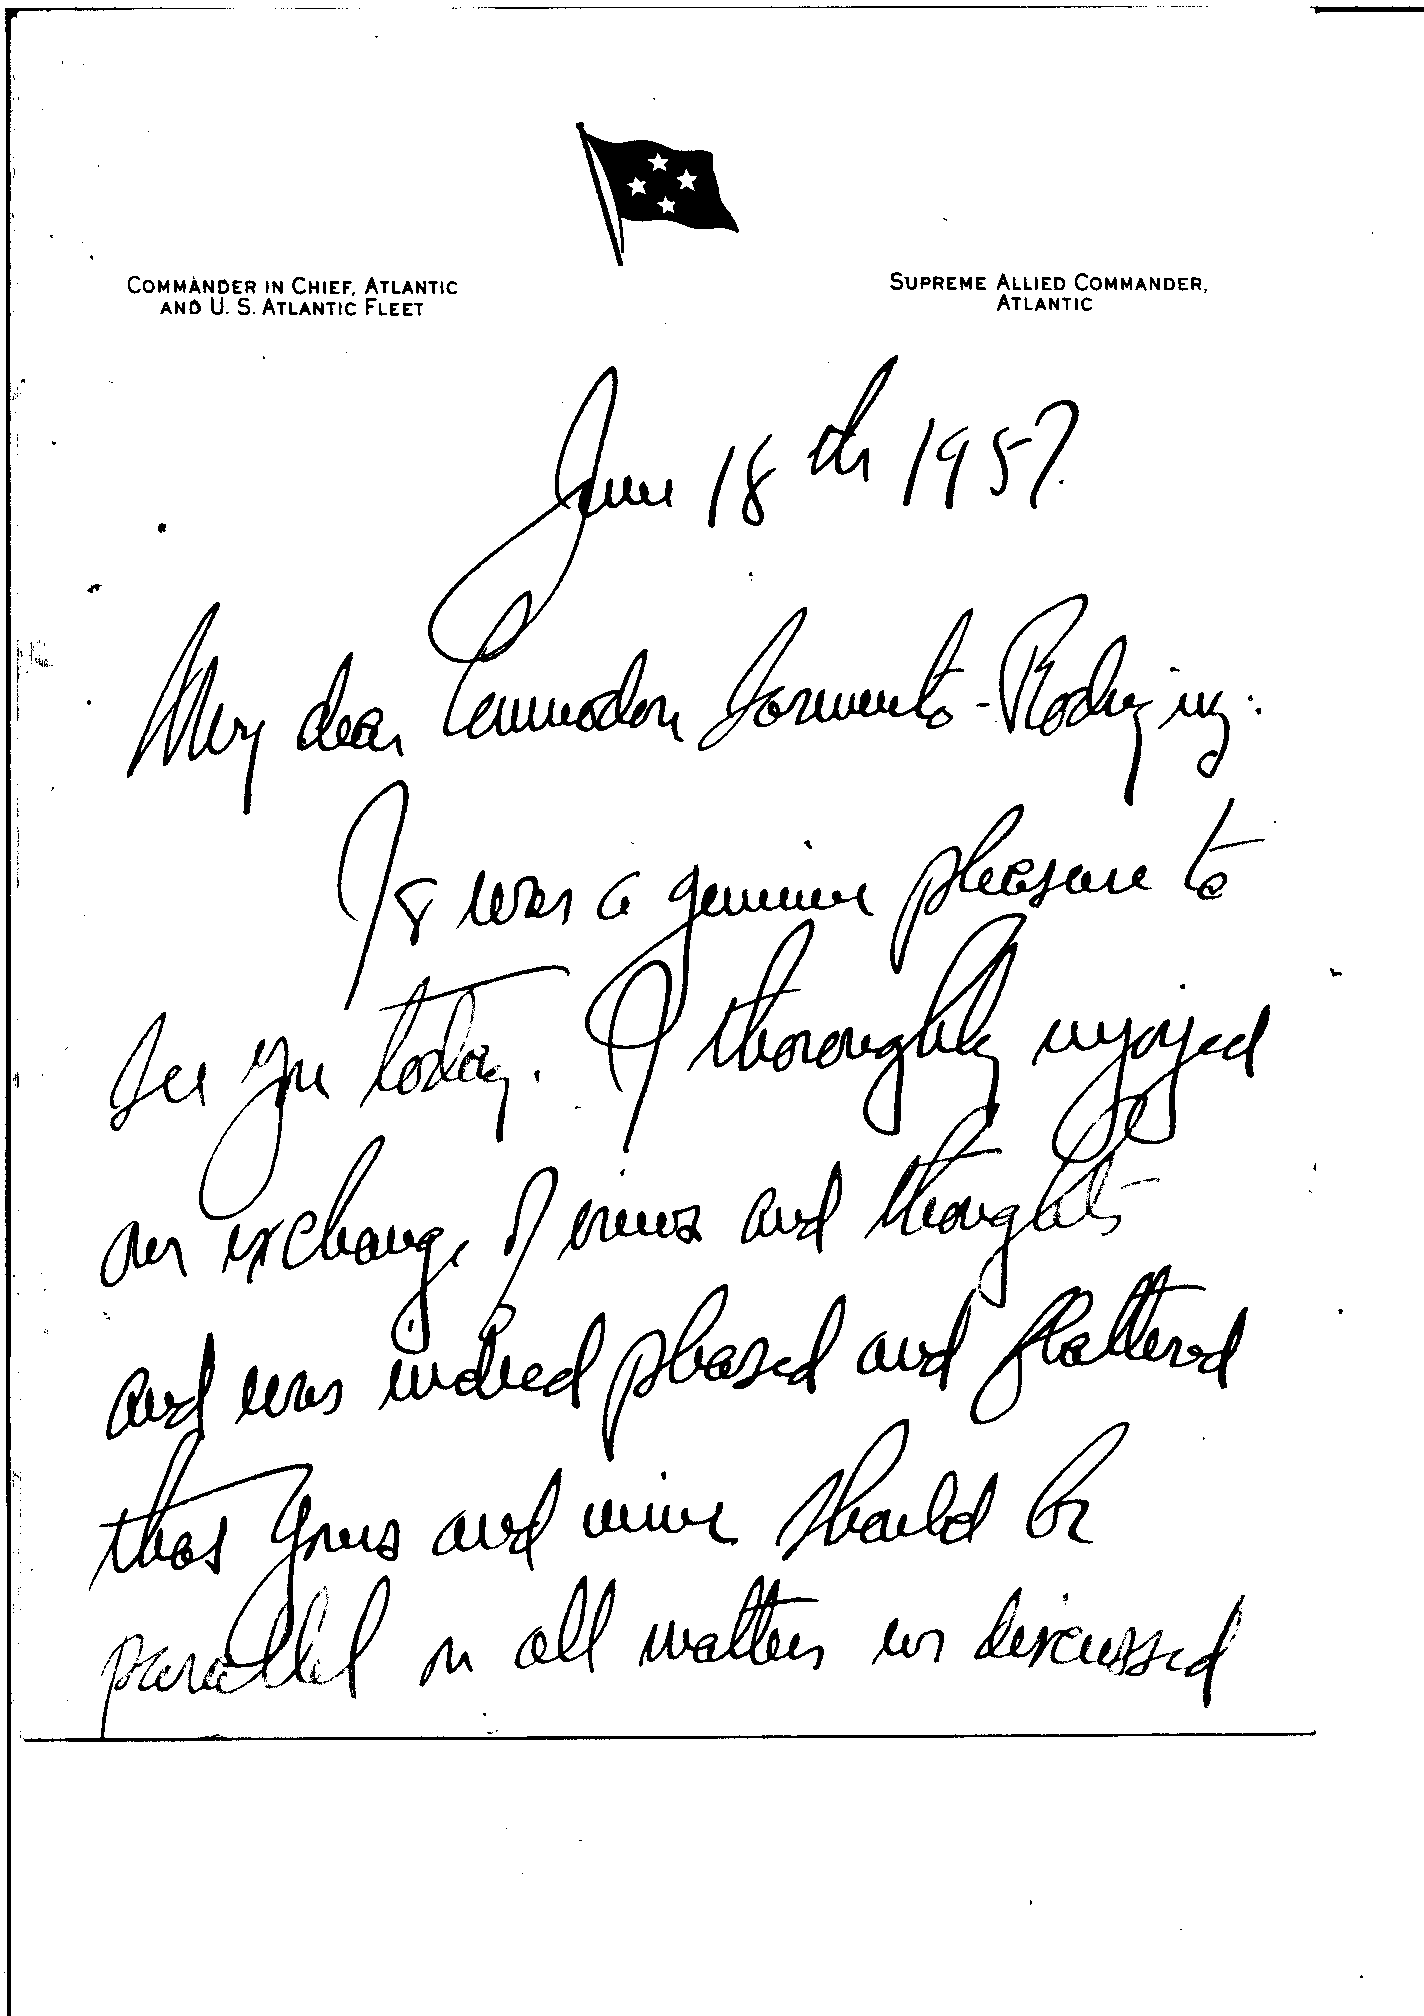 COMMANDER IN CHIEF, ATLANTIC
AND U. S. ATLANTIC FLEET
SUPREME ALLIED COMMANDER,
ATLANTIC
June 18th 1957
My dear Commodore Sarmento-Rodrigues:
It was a genuine pleasure to
see you today. I thoroughly enjoyed
our exchange of views and thoughts
and was indeed pleased and flattered
that yours and mine should be
parallel on all matters we discussed